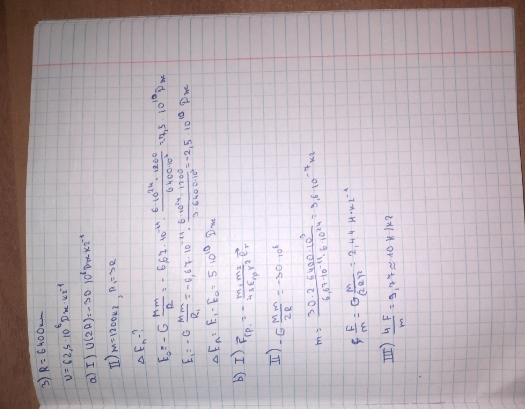 3) R = 6400км
U = 62,5·10⁶ Дж·кг⁻¹
a) I) U(2R) = -30·10⁶ Дж·кг⁻¹
II) m = 1200кг, R₁ = 3R
ΔEп - ?
E₀ = -G Mm/R = -6,67·10⁻¹¹ · 6·10²⁴·1200/6400·10³ = -7,5·10¹⁰ Дж
E₁ = -G Mm/R₁ = -6,67·10⁻¹¹ · 6·10²⁴·1200/3·6400·10³ = -2,5·10¹⁰ Дж
ΔEп = E₁ - E₀ = 5·10¹⁰ Дж
b) I)
II) -G Mm/2R = -30·10⁶
m = 30·2·6400·10³/6,67·10⁻¹¹·6·10²⁴ = 9,6·10⁻⁷ кг
F/m = G M/(2R)² = 2,44 Н·кг⁻¹
III) 4 F/m = 9,77 ≈ 10 Н/кг